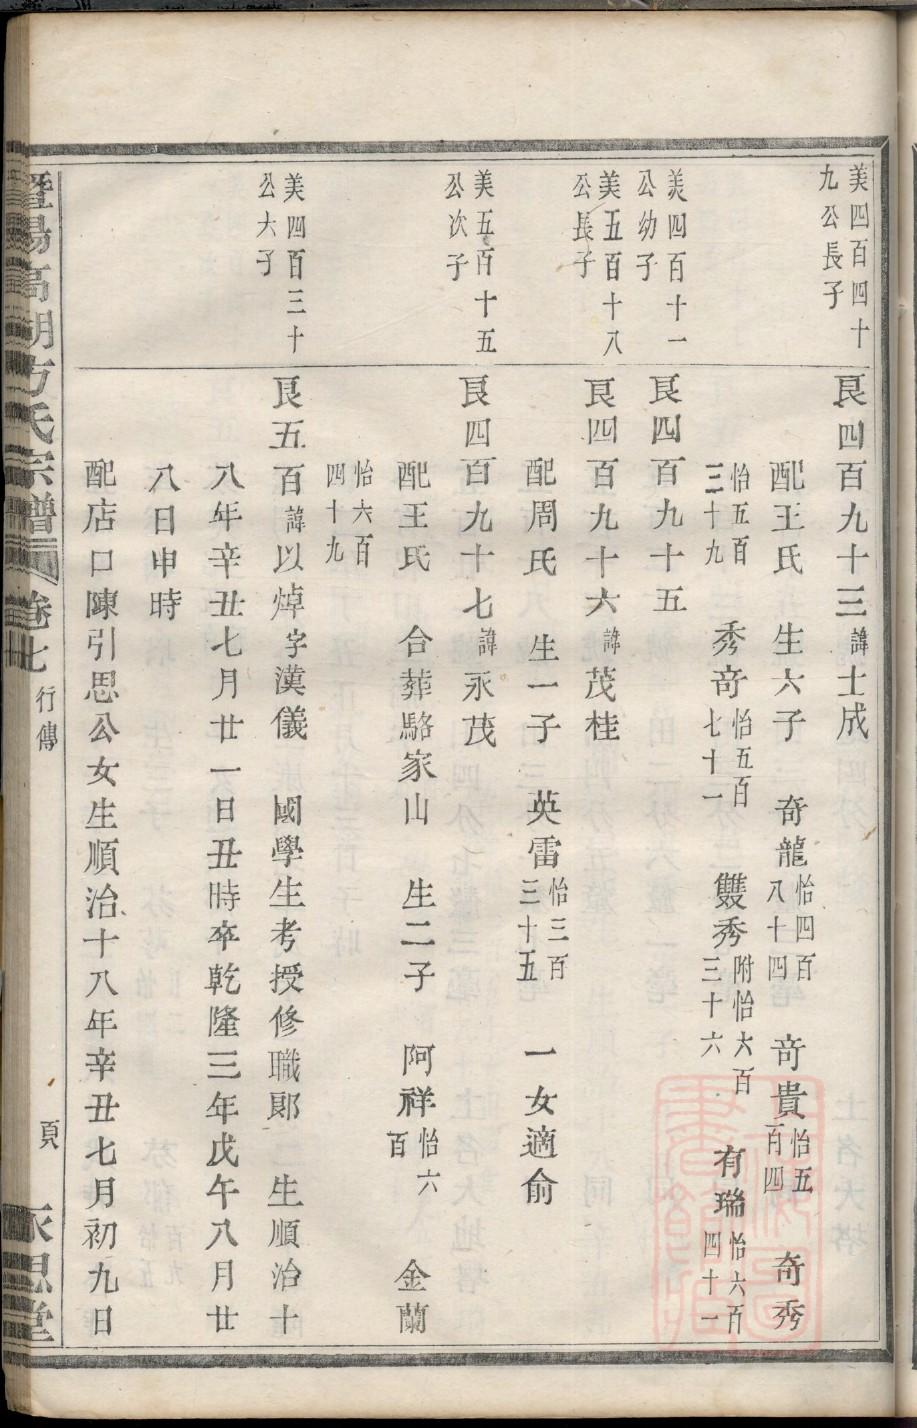 美四百四十
九公長子
艮四百九十三諱士成
配王氏 生六子 奇龍怡四百八十四 奇貴怡五百四 奇秀
怡五百三十九 秀奇怡五百七十一 雙秀附怡六百三十六 有瑞怡六百四十一
美四百十一
公幼子
艮四百九十五
美五百十八
公長子
艮四百九十六諱茂桂
配周氏 生一子 英雷怡三百三十五 一女適俞
美五百十五
公次子
艮四百九十七諱永茂
配王氏 合葬駱家山 生二子 阿祥怡六百 金蘭
怡六百四十九
美四百三十
公大子
艮五百諱以焯字漢儀 國學生考授修職郎 生順治十
八年辛丑七月廿一日丑時卒乾隆三年戊午八月廿
八日申時
配店口陳引思公女生順治十八年辛丑七月初九日
暨陽高湖方氏宗譜 卷七 行傳 頁 永思堂